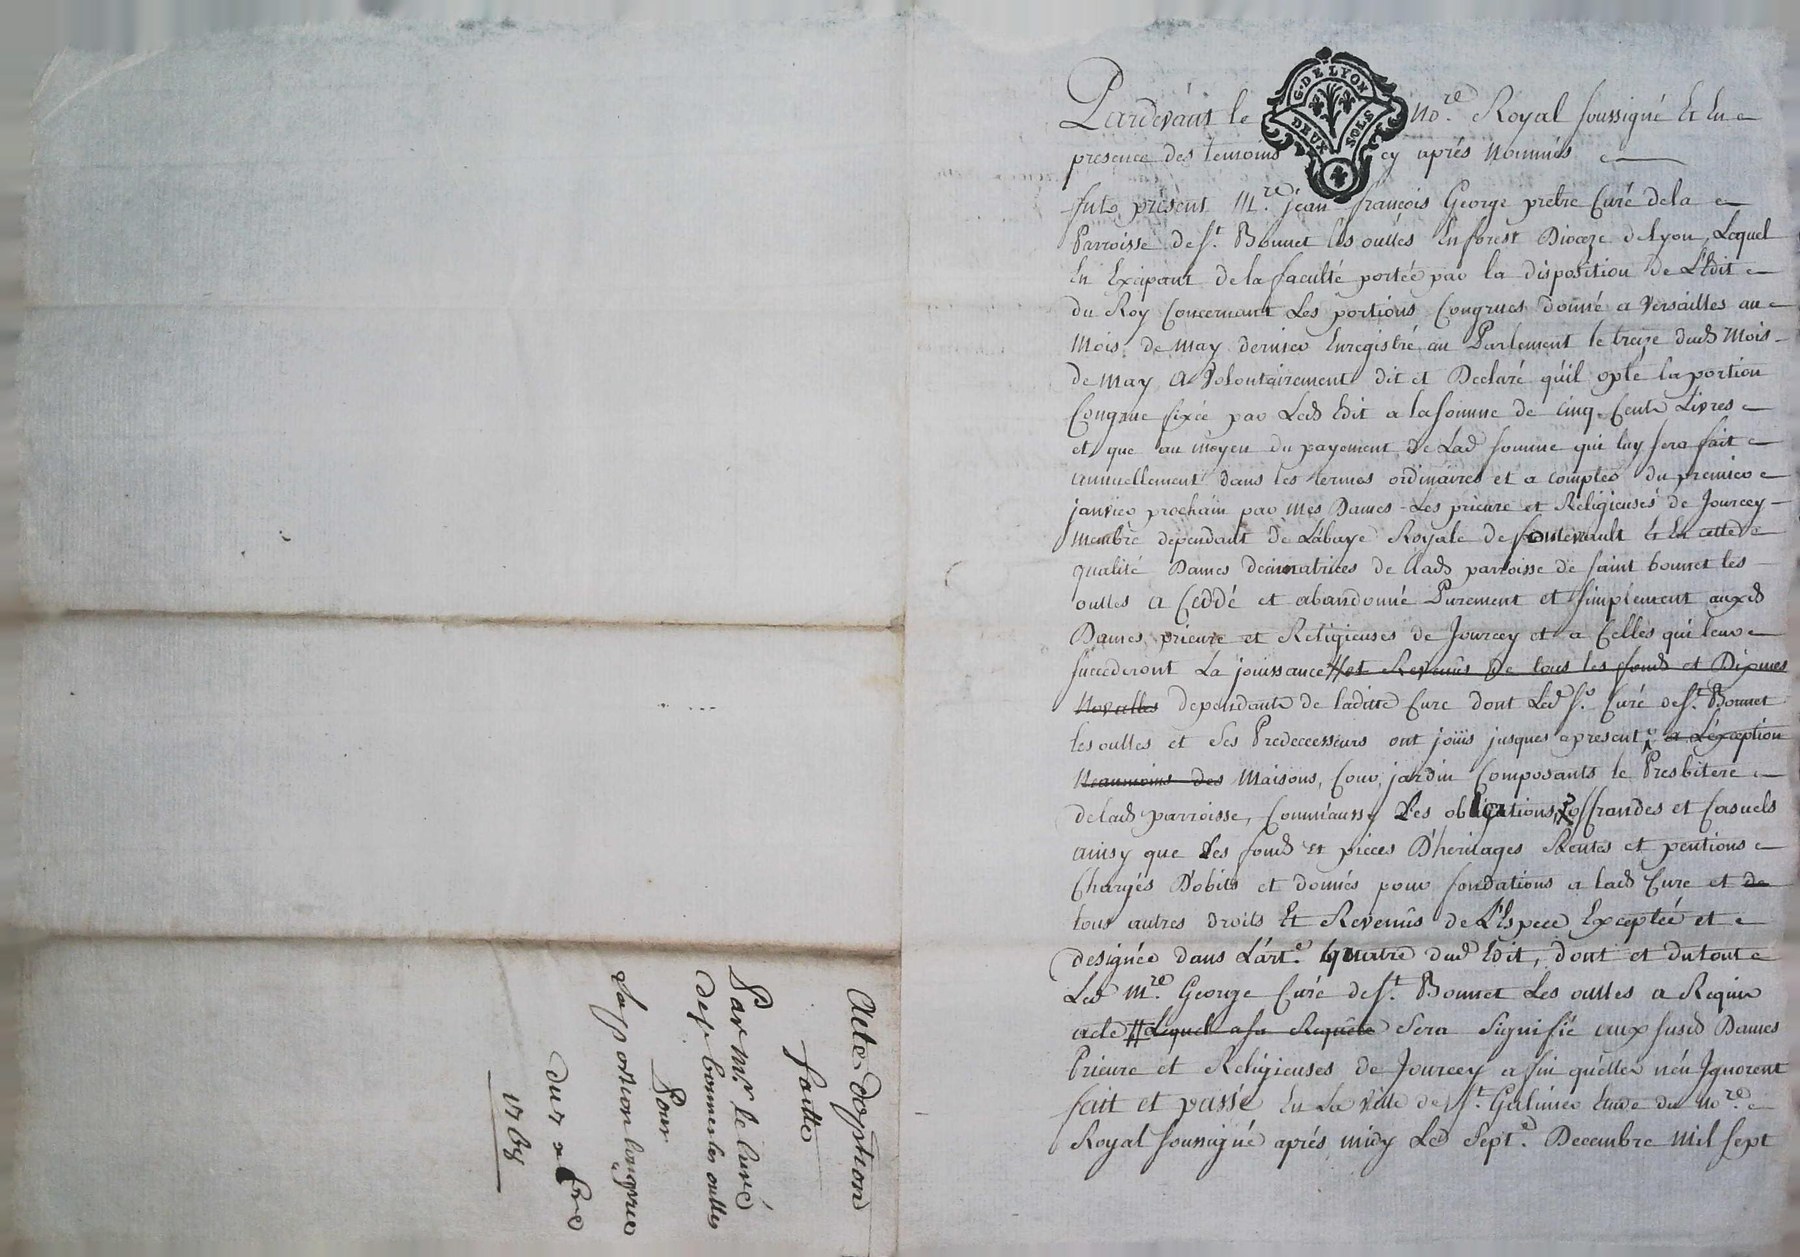 G. DE LYON
DEUX SOLS
Pardevant le no.re Royal soussigné Et En
presence des temoins cy aprés Nommés
fut present M.re jean françois George prêtre Curé dela
Parroisse de St. Bonnet les oulles En forest Dioceze de Lyon, Lequel
En Excipant de la faculté portée par la disposition de L'Edit
du Roy Concernant Les portions Congrues donné a Versailles au
Mois de may dernier Enregistré au Parlement le treze dud mois
de may, a Volontairement dit et Declaré qu'il opte la portion
Congrue fixée par Led Edit a la somme de cinq Cents Livres
et que au moyen du payement de Lad somme qui luy sera fait
annuellement dans les termes ordinaires et a compter du premier
janvier prochain par mes Dames Les prieure et Religieuses de Jourcey
membre dependant de L'abaye Royale de fontevrault Et En cette
qualité Dames decimatrices de lad parroisse de saint bonnet les
oulles a Ceddé et abandonné Purement et simplement auxd
Dames prieure et Religieuses de Jourcey et a Celles qui leur
succederont La jouissance # et Revenûs De tous les fonds et Dixmes
Novalles dependants de laditte Cure dont Led Sr. Curé de St. Bonnet
les oulles et ses Predecesseurs ont joüis jusques apresent, a L'exception
Neanmoins des Maisons, Cour, jardin Composants le Presbitere
de lad parroisse, Comm'aussy Les obligations, offrandes et Casuels
ainsy que Les fonds Et pieces D'heritages Rentes et pentions
Chargés D'obits et donnés pour fondations a lad Cure et de
tous autres droits Et Revenûs de L'Espece Exceptée et
designée dans L'art.e quatre dud Edit, dont et du tout
Led M.re George Curé de St. Bonnet Les oulles a Requis
acte # Lequel a sa Requête Sera Signifié aux susd Dames
Prieure et Religieuses de Jourcey afin quelles n'en Ignorent
fait et passé En La ville de St. Galmier Etude du no.re
Royal soussigné aprés midy Led Sept.e Decembre mil sept
Acte d'option
faitte
Par Mr. le Curé
de St. bonnet les oulles
Pour
La portion Congrue
du 7 Xbre
1768